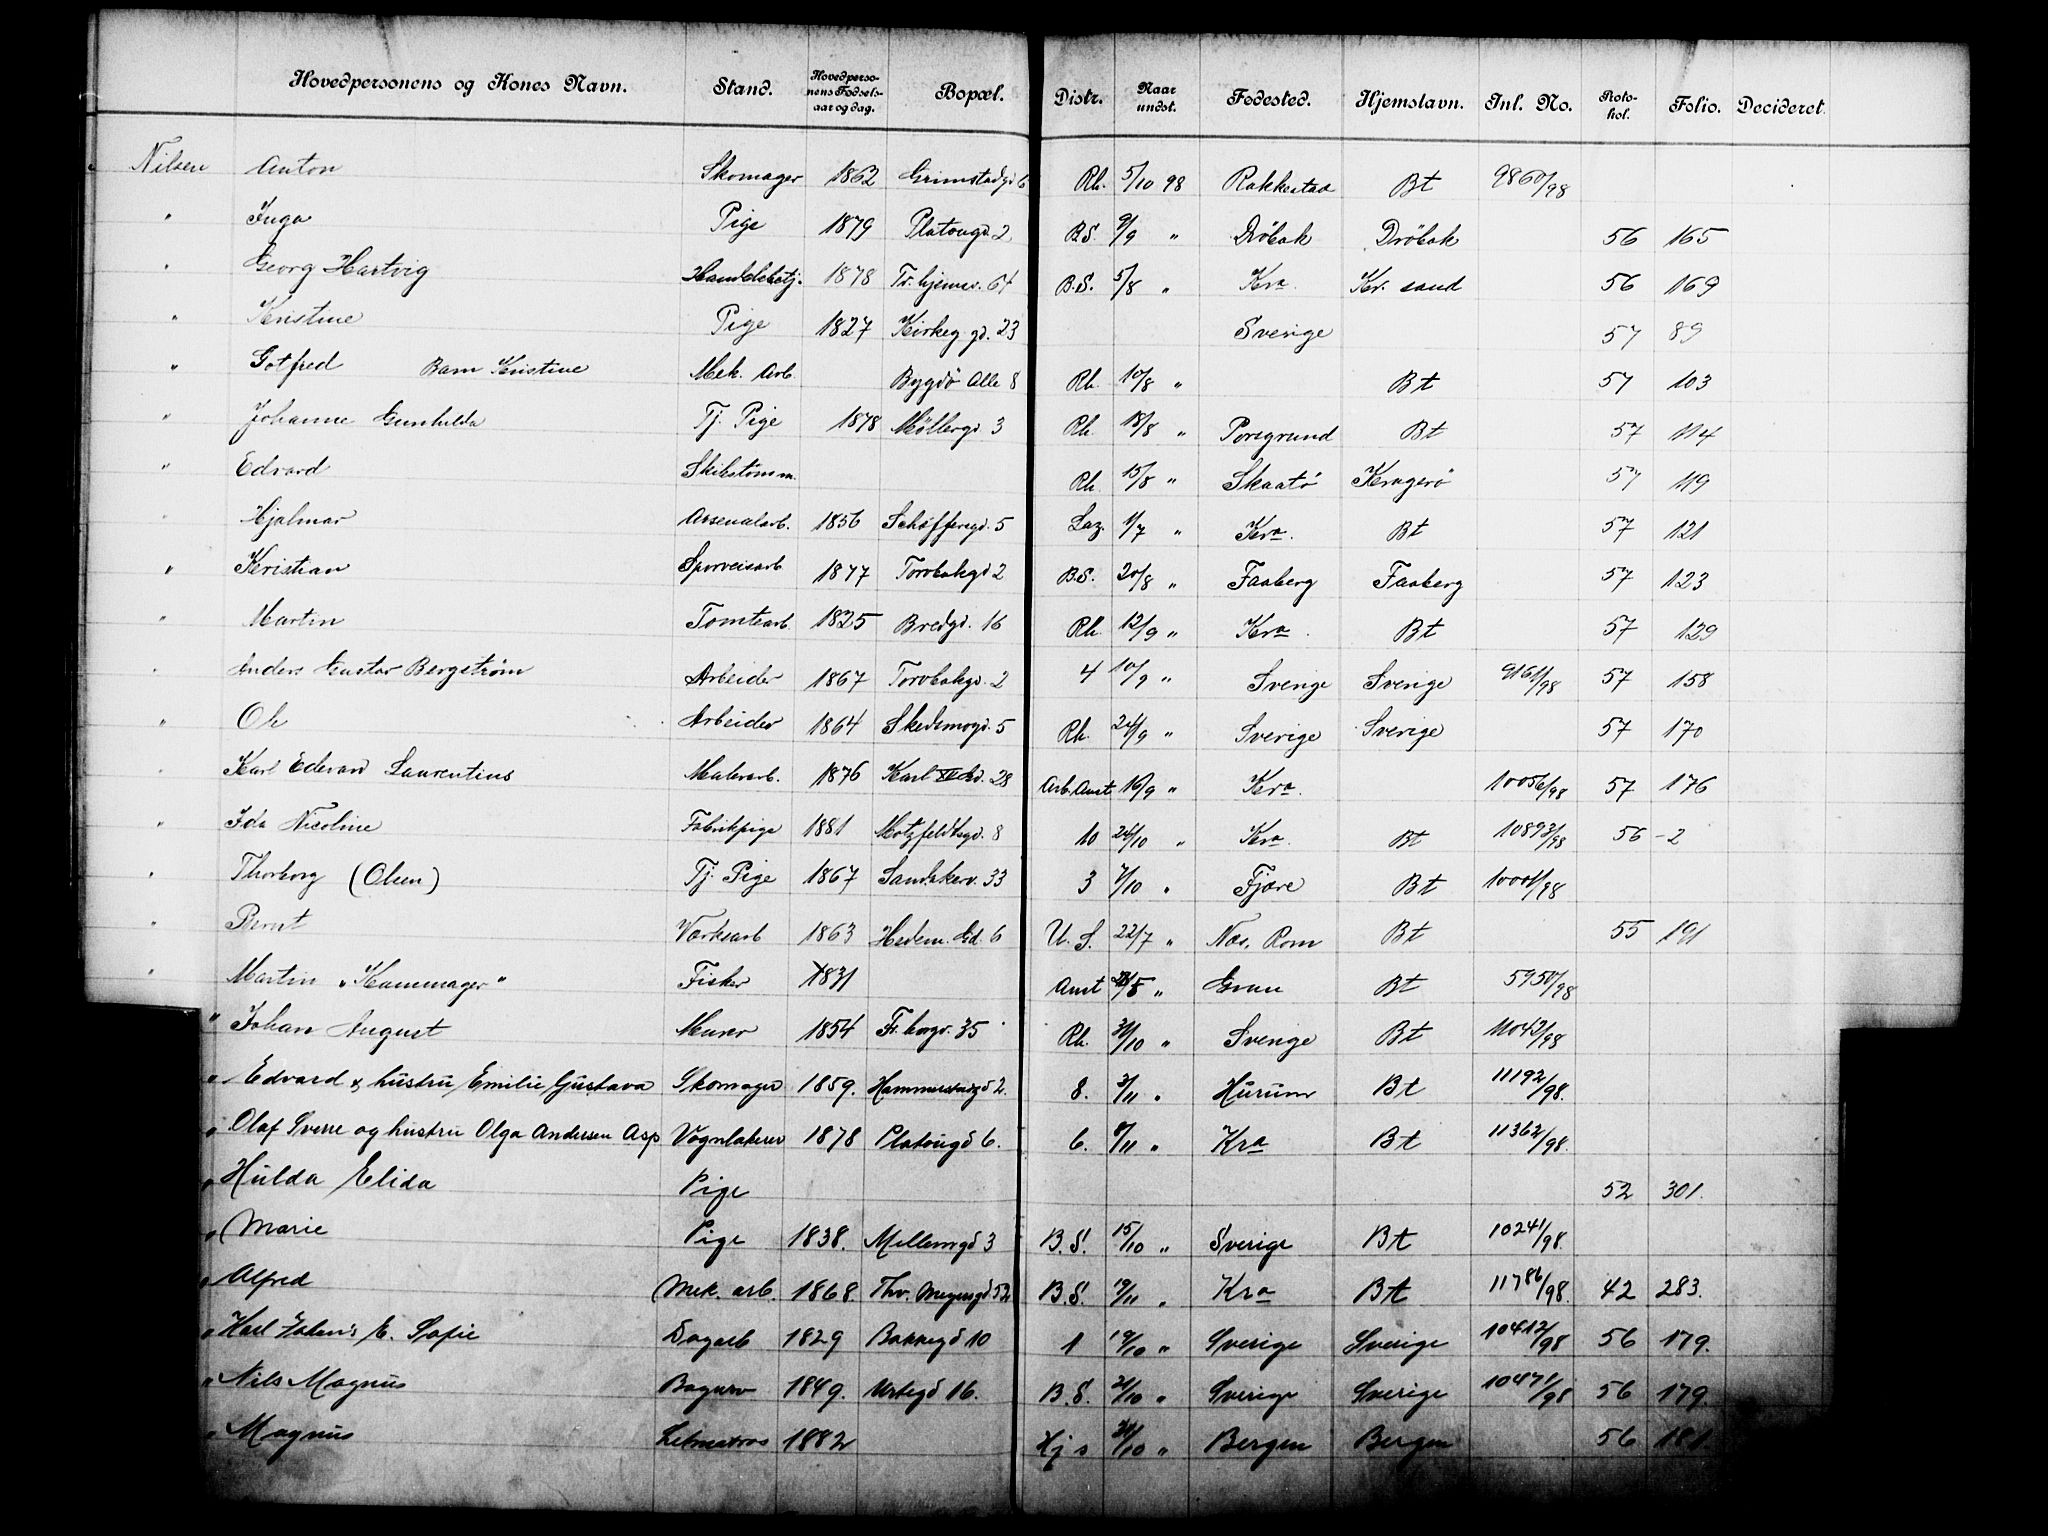 Hovedpersonens og Kones Navn. Stand. Hovedperso-nens Fødsels-aar og dag. Bopæl. Distr. Naar undst. Fødested. Hjemstavn. Inl. No. Proto-kol. Folio. Decideret.
Nilsen Anton Skomager 1862 Grimstadgd 6 Rh. 5/10 98 Rakkestad Bt 9860/98
" Inga Pige 1879 Platougd. 2 B.S. 9/9 " Dröbak Dröbak 56 165
" Georg Hartvig Handelsbetj. 1878 Tr.hjemsv. 64 B.S. 5/8 " Kra Kr. sand 56 169
" Kristine Pige 1827 Kirkeg gd. 23 Sverige 57 89
" Gotfred Barn Kristine Mek. Arb. Bygdö Alle 8 Rh. 10/8 " Bt 57 103
" Johanne Gunhilda Tj. Pige 1878 Møllergd 3 Rh. 18/8 " Porsgrund Bt 57 114
" Edvard Skibstømm. Rh. 15/8 " Skaatö Kragerö 57 119
" Hjalmar Arsenalarb. 1856 Schøffersgd. 5 Laz. 1/7 " Kra. Bt 57 121
" Kristian Sporveisarb 1877 Torvbakgd 2 B.S. 20/8 " Faaberg Faaberg 57 123
" Martin Tomtearb. 1825 Bredgd. 16 Rh. 12/9 " Kra. Bt 57 129
" Anders Gustav Bergstrøm Arbeider 1867 Torvbakgd. 2 4 10/9 " Sverige Sverige 9161/98 57 158
" Ole Arbeider 1864 Skedsmogd. 5 Rh. 24/9 " Sverige Sverige 57 170
" Karl Edevard Laurentius Malerarb. 1876 Karl XII Gd. 28 Arb. Anst 16/9 " Kra. 10056/98 57 176
" Ida Nicoline Fabrikpige 1881 Motzfeldtsgd. 8 10 26/10 " Kra. Bt 10893/98 56 - 2
" Thorborg (Olsen) Tj. Pige 1867 Sandakerv. 33 3 7/10 " Fjære Bt 10001/98
" Bernt Værksarb 1863 Hedem. Gd. 6 U.S. 22/7 " Næs, Rom Bt 55 191
" Martin "Kammager" Fisker 1831 Anst /5 " Gran Bt 5950/98
" Johan August Murer 1854 Fr.borgv. 35 Rh. 31/10 " Sverige Bt 11043/98
" Edvard & hustru Emilie Gustava Skomager 1859. Hammerstadgd 2. 8. 3/11 " Hurum Bt 11192/98.
" Olaf Sverre og hustru Olga Andersen Asp Vognlakerer 1878 Platougd 6. 6. 8/11 " Kra Bt 11362/98.
" Hulda Elida Pige 52 301.
" Marie Pige 1838. Mellemgd 3 B.S. 15/10 " Sverige Bt 10241/98.
" Alfred Mek. arb. 1868. Thv. Meyersgd B.S. 19/11 " Kra Bt 11786/98. 42 283.
" Karl Johans E. Sofie Dagarb 1829 Bakkegd 10 1 19/10 " Sverige Sverige 10412/98 56 179.
" Nils Magnus Bager 1849. Urtegd 16. B.S. 21/10 " Sverige Sverige 10471/98 56 179.
" Magnus Letmatros 1882 Hj s /10 " Bergen Bergen 56 181